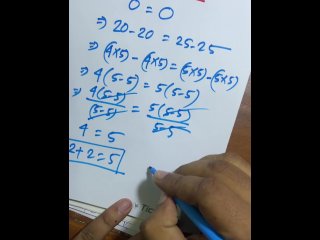 0 = 0
⇒ 20-20 = 25-25
⇒ (4×5) - (4×5) = (5×5) - (5×5)
⇒ 4(5-5) = 5(5-5)
⇒ 4(5-5)/(5-5) = 5(5-5)/5-5
4 = 5
2+2=5
× TIC